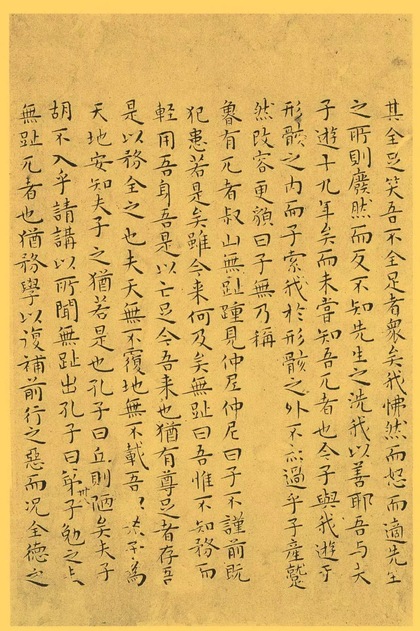 其全足笑吾不全足者衆矣我怫然而怒而適先生
之所則廢然而反不知先生之洗我以善耶吾与夫
子遊十九年矣而未嘗知吾兀者也今子與我遊于
形骸之内而子索我於形骸之外不亦過乎子産蹵
然改容更皃曰子無乃稱
魯有兀者叔山無趾踵見仲尼仲尼曰子不謹前既
犯患若是矣雖今来何及矣無趾曰吾惟不知務而
軽用吾身吾是以亡足今吾来也猶有尊足者存吾
是以務全之也夫天無不覆地無不載吾夫子為
天地安知夫子之猶若是也孔子曰丘則陋矣夫子
胡不入乎請講以所聞無趾出孔子曰弟子勉之
無趾兀者也猶務學以復補前行之惡而况全德之